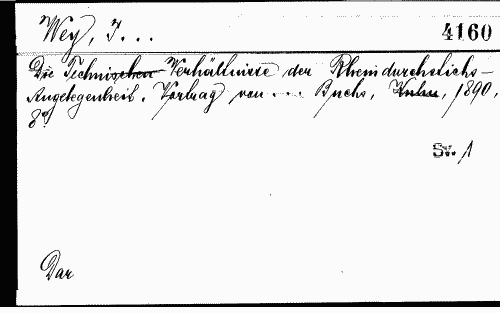 Wey, J...
4160
Die Technischen Verhältnisse der Rheindurchstichs-
Angelegenheit. Vortrag von .... Buchs, Kuhn, 1890.
8°.
Sv. 1
Dar